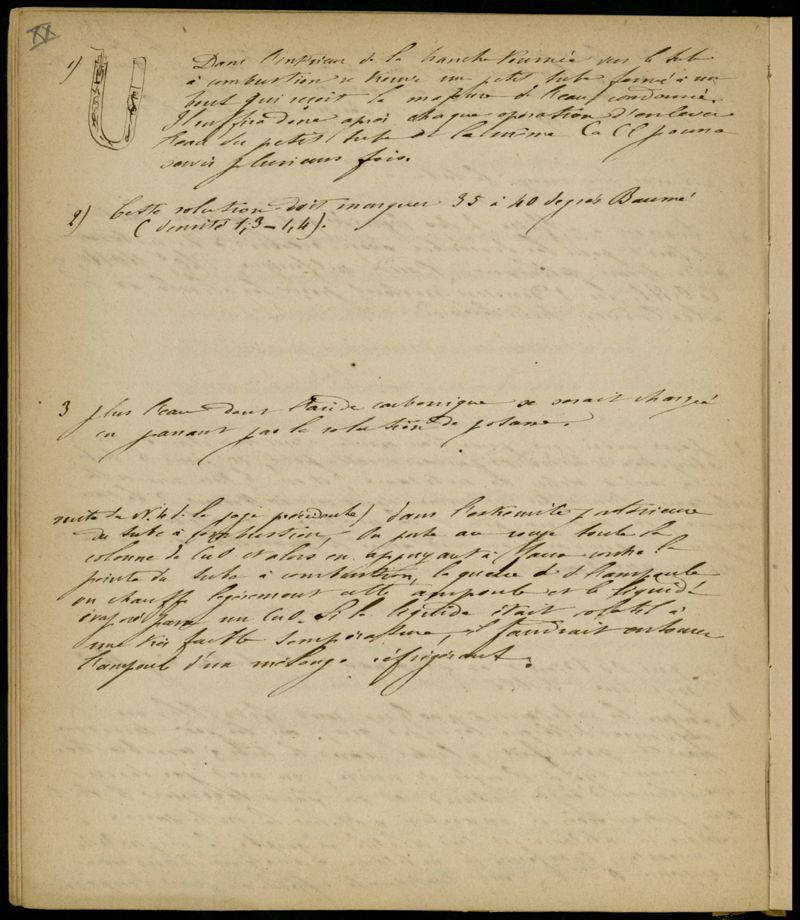 XX
1) Dans l'intérieur de la branche tournée vers le tube
à combustion se trouve un petit tube fermé à un
bout qui reçoit la majeure d. l'eau condensée.
Il suffira donc après chaque opération d'enlever
l'eau du petit tube et le même Ca Cl pourra
servir plusieurs fois.
2) Cette solution doit marquer 35 à 40 degrés Baumé
(densité 1,3 – 1,4).
3 plus l'eau dont l'acide carbonique se serait chargé
en passant par la solution de potasse.
suite de N. 4 d. la page précédente) dans l'extrémité postérieure
du tube à combustion, on porte au rouge toute la
colonne de CuO et alors en appuyant à contre la
pointe du tube à combustion, la queue de l'ampoule
on chauffe légèrement cette ampoule et le liquide
évaporé passe un CuO. Si le liquide était volatil à
une très faible température, il faudrait entourer
l'ampoule d'un mélange réfrigérant.